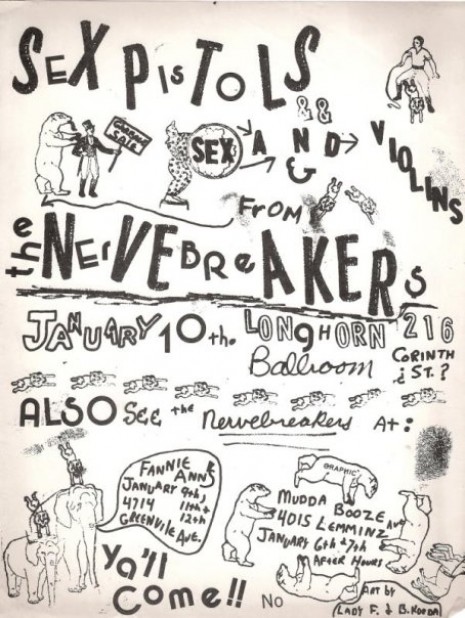 SEX PISTOLS
&&
GARBAGE SALE
SEX AND VIOLINS
&
FROM
the NERVEBREAKERS
JANUARY 10th. LONGHORN 216
Ballroom CORINTH
¿ ST. ?
ALSO SEE the Nervebreakers AT:
FANNIE
ANN'S
JANUARY 9th,
11th +
12th
4714
GREENVILLE AVE.
GRAPHIC
MUDDA BOOZE
4015 LEMMINZ AVE
JANUARY 6th & 7th
AFTER HOURS
ya'll
Come!!
NO
ART by
LADY F. & B. KOODA